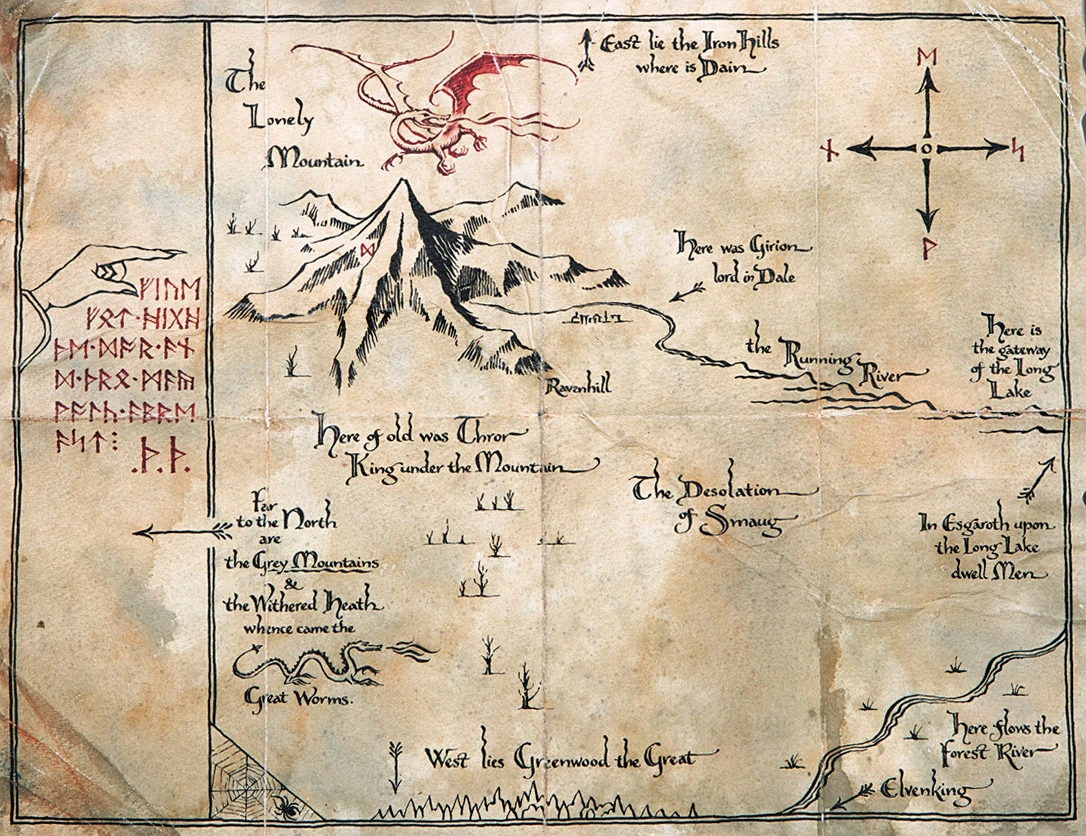 East lie the Iron Hills
where is Dain
The
Lonely
Mountain
ᛖ
ᚾ
ᛋ
ᚹ
ᛞ
Here was Girion
lord in Dale
ᚠᛁᚢᛖ
ᚠᛟᛏ᛫ᚻᛁᚷᚻ
ᚦᛖ᛫ᛞᚩᚱ᛫ᚪᚾ
ᛞ᛫ᚦᚱᛟ᛫ᛗᚪᚣ
ᚹᚪᛚᚳ᛫ᚪᛒᚱᛖ
ᚪᛋᛏ⁝
.ᚦ.ᚦ.
the Running River
Here is
the gateway
of the Long
Lake
Ravenhill
Here of old was Thror
King under the Mountain
The Desolation
of Smaug
Far
to the North
are
the Grey Mountains
&
the Withered Heath
whence came the
Great Worms.
In Esgaroth upon
the Long Lake
dwell Men
Here flows the
Forest River
West lies Greenwood the Great
Elvenking